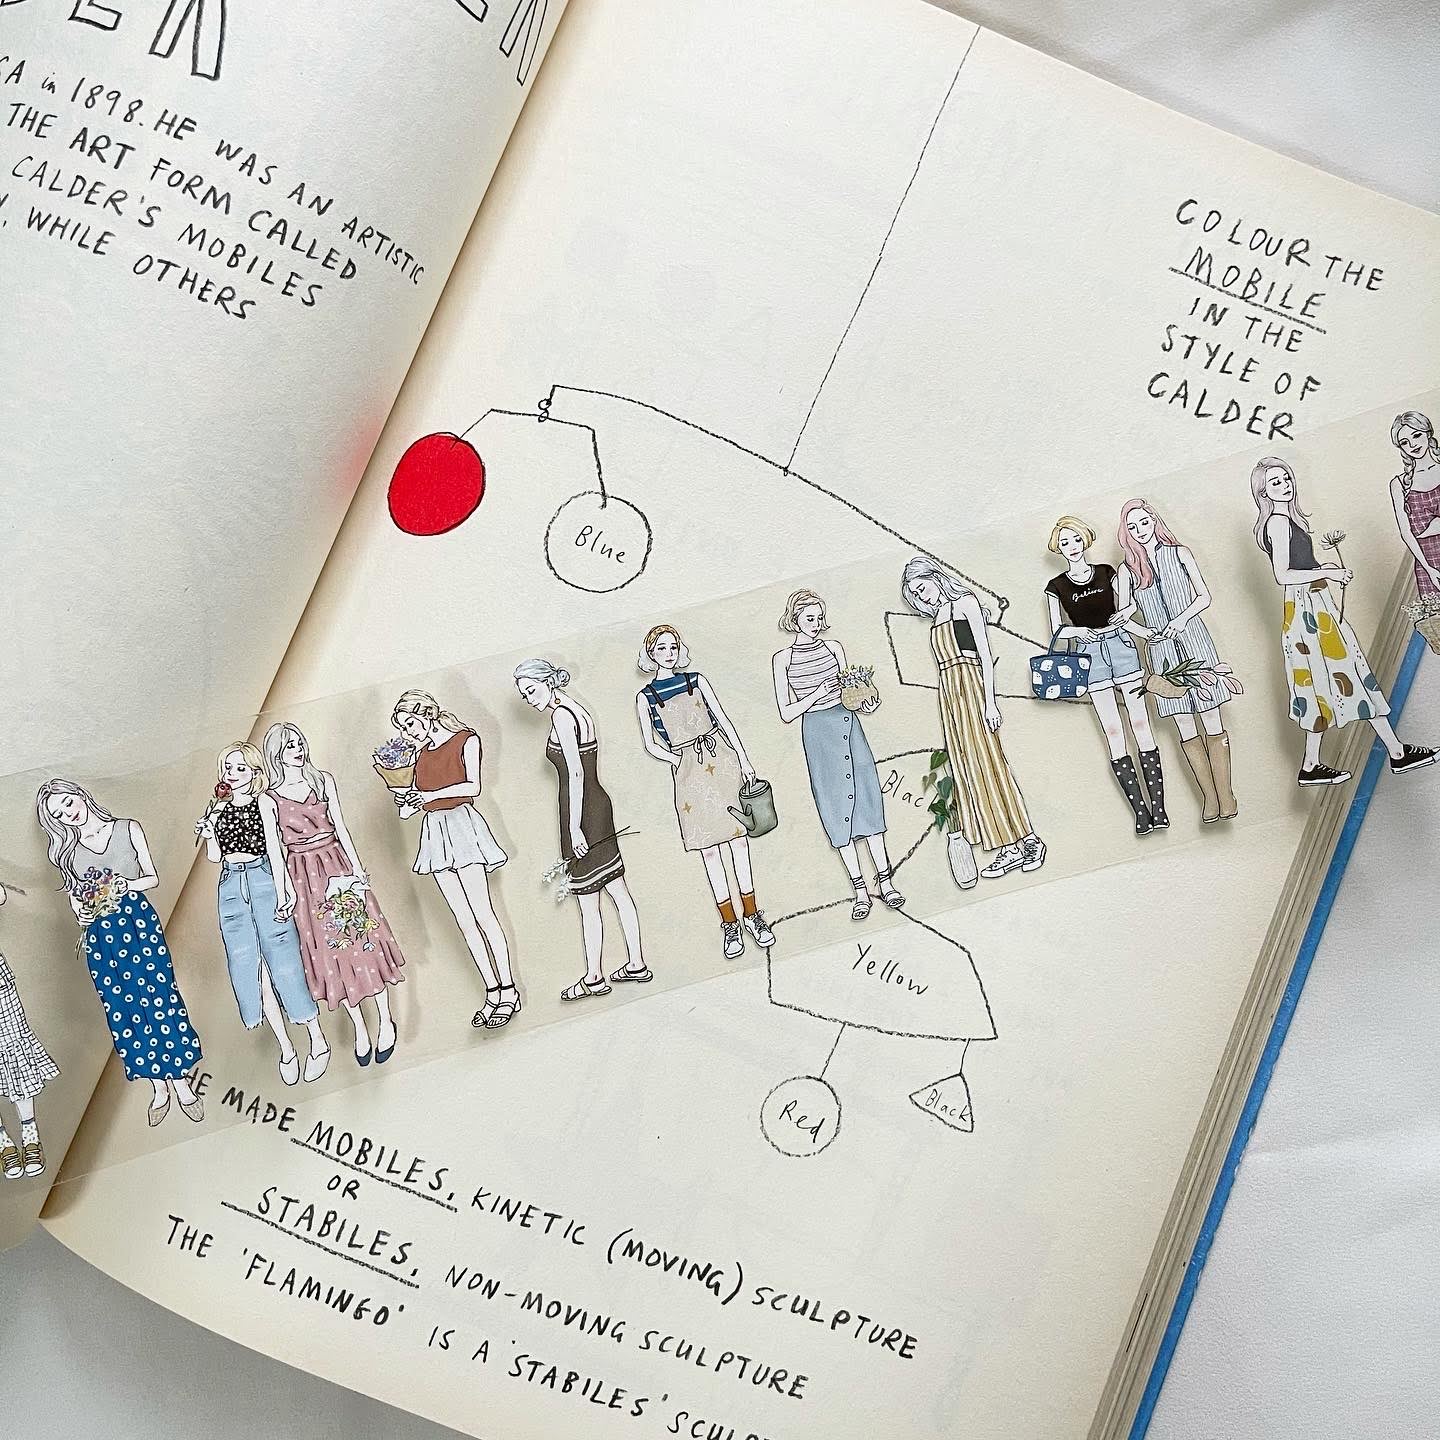 SA in 1898. HE WAS AN ARTISTIC
THE ART FORM CALLED
CALDER'S MOBILES
WHILE OTHERS
COLOUR THE
MOBILE
IN THE
STYLE OF
CALDER
Blue
Believe
Blac
Yellow
Red
Black
HE MADE MOBILES, KINETIC (MOVING) SCULPTURE
OR
STABILES, NON-MOVING SCULPTURE
THE 'FLAMINGO' IS A 'STABILES' SCULPT